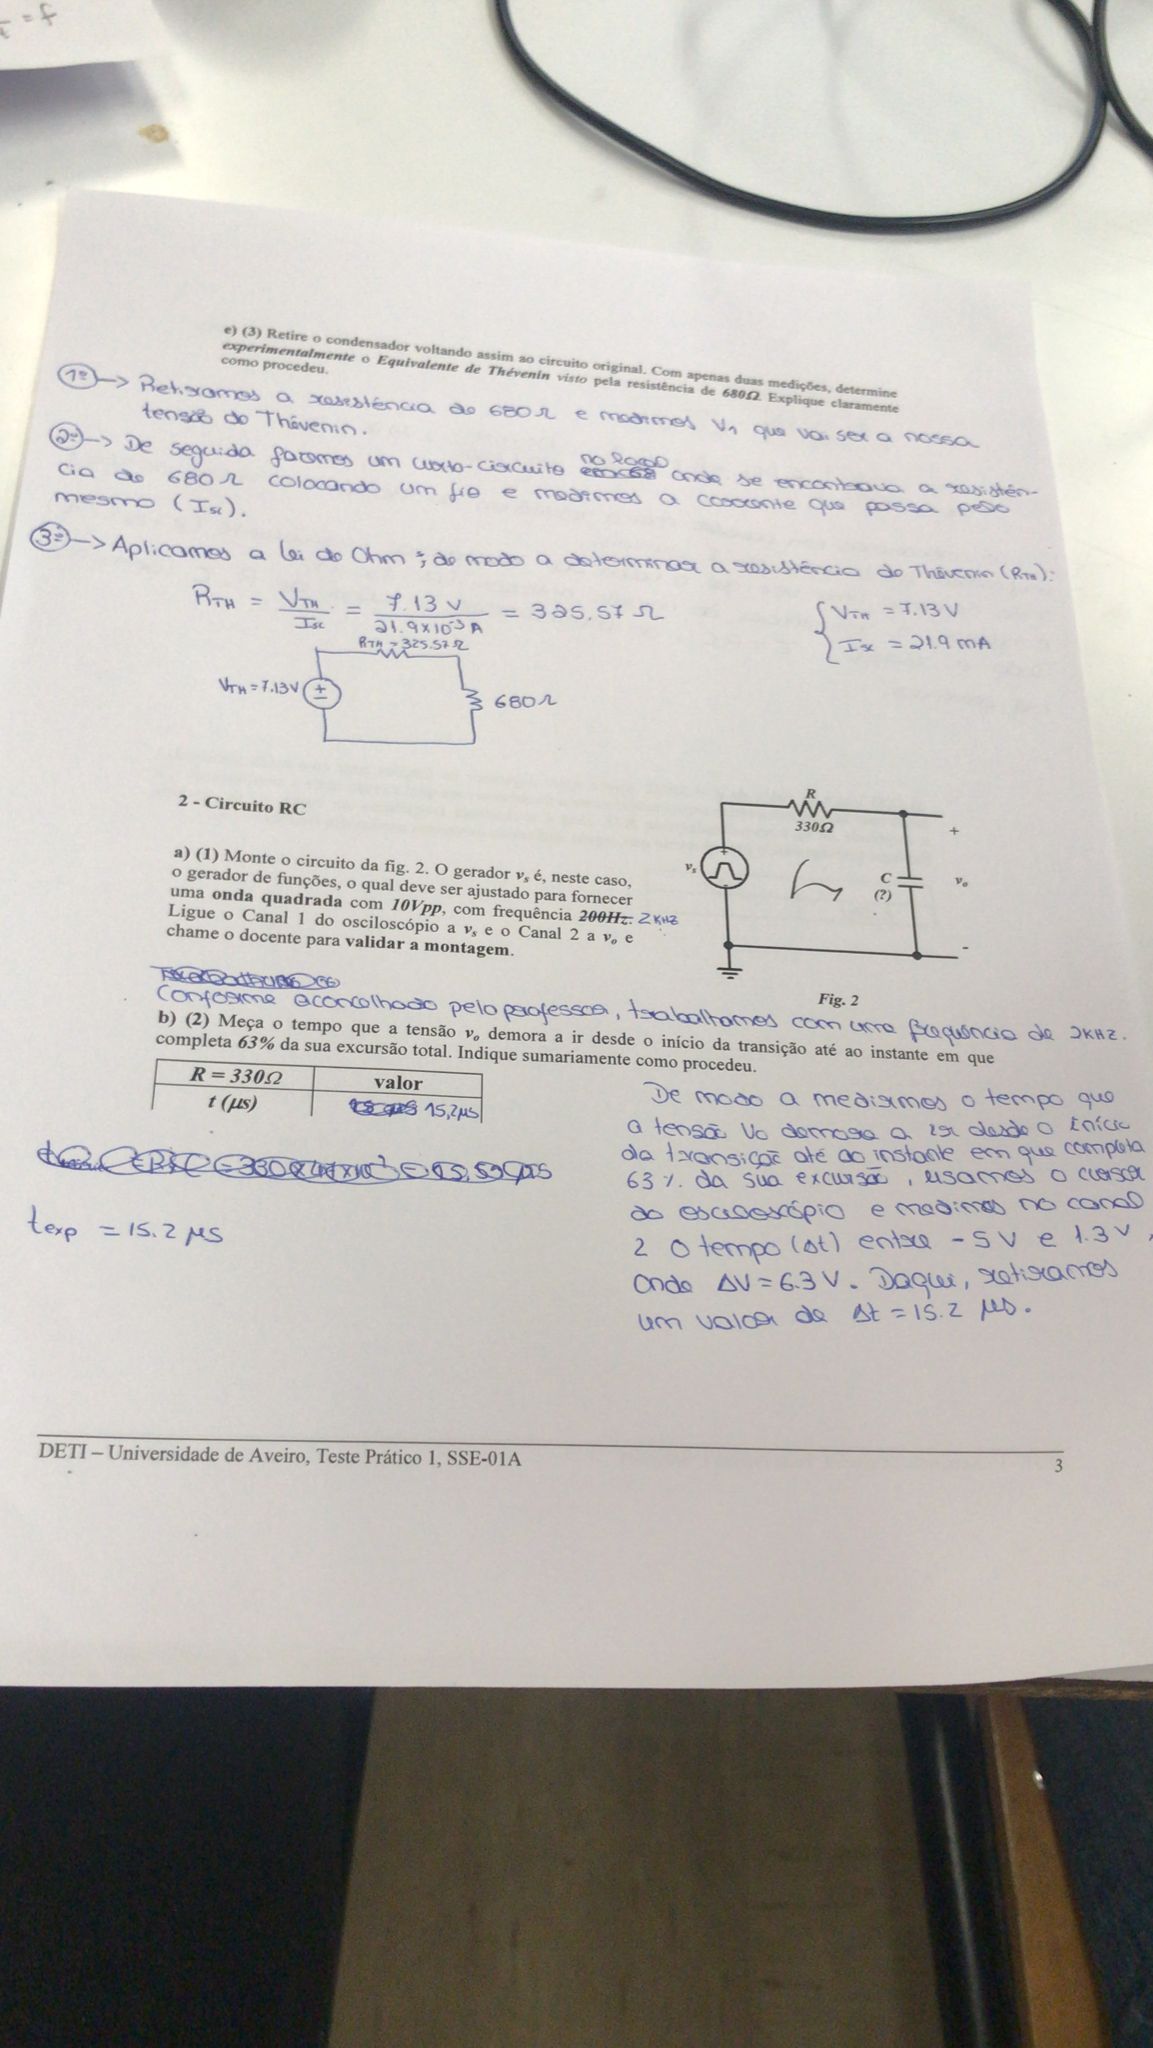 = f
e) (3) Retire o condensador voltando assim ao circuito original. Com apenas duas medições, determine
experimentalmente o Equivalente de Thévenin visto pela resistência de 680Ω. Explique claramente
como procedeu.
1º -> Retiramos a resistência de 680 Ω e medimos V1 que vai ser a nossa
tensão de Thévenin.
2º -> De seguida fazemos um curto-circuito no local onde se encontrava a resistên-
cia de 680 Ω colocando um fio e medimos a corrente que passa pelo
mesmo (Isc).
3º -> Aplicamos a lei de Ohm, de modo a determinar a resistência de Thévenin (RTH):
RTH = VTH / Isc = 7.13 V / 21.9×10⁻³ A = 325.57 Ω
{ VTH = 7.13 V
Isc = 21.9 mA
RTH = 325.57 Ω
VTH = 7.13V
680 Ω
2 - Circuito RC
a) (1) Monte o circuito da fig. 2. O gerador vs é, neste caso,
o gerador de funções, o qual deve ser ajustado para fornecer
uma onda quadrada com 10Vpp, com frequência 200Hz. 2 KHz
Ligue o Canal 1 do osciloscópio a vs e o Canal 2 a vo e
chame o docente para validar a montagem.
R
330Ω
vs
C
(?)
+
vo
-
Fig. 2
Conforme aconcelhado pelo professor, trabalhamos com uma frequência de 2KHz.
b) (2) Meça o tempo que a tensão vo demora a ir desde o início da transição até ao instante em que
completa 63% da sua excursão total. Indique sumariamente como procedeu.
R = 330Ω valor
t (μs) 15,2μs
texp = 15.2 μs
De modo a medirmos o tempo que
a tensão Vo demora a ir desde o início
da transição até ao instante em que completa
63 % da sua excursão, usamos o cursor
do osciloscópio e medimos no canal
2 o tempo (Δt) entre -5 V e 1.3 V,
onde ΔV = 6.3 V. Daqui, retiramos
um valor de Δt = 15.2 μs.
DETI – Universidade de Aveiro, Teste Prático 1, SSE-01A
3